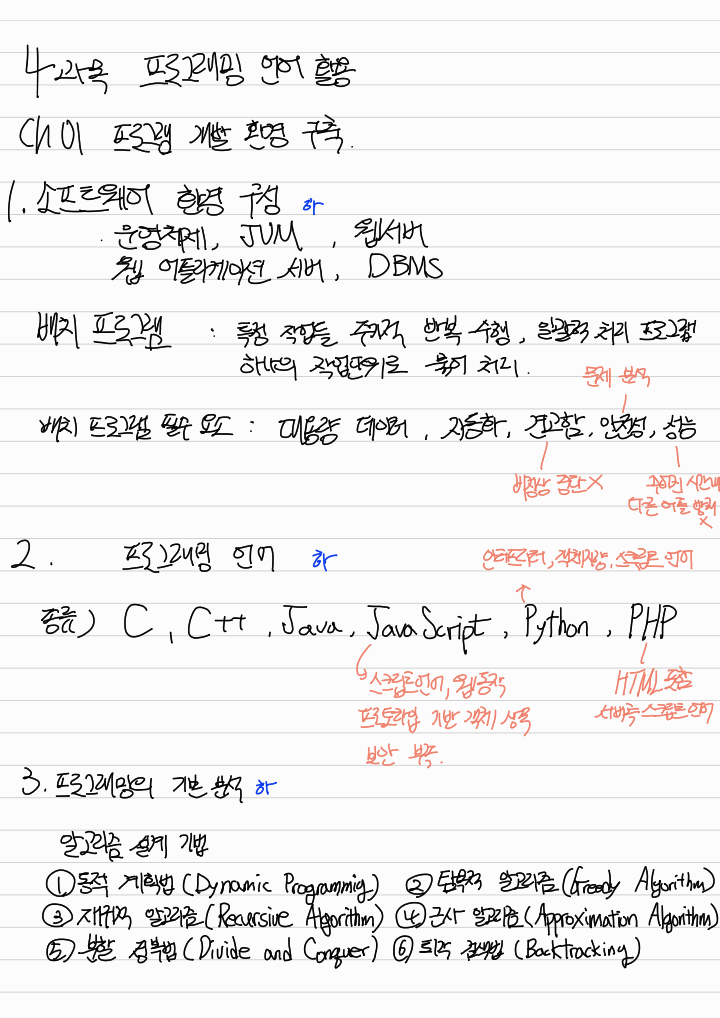 4과목 프로그래밍 언어 활용
Ch 01 프로그램 개발 환경 구축.
1. 소프트웨어 환경 구성 하
· 운영체제, JVM , 웹서버
웹 어플리케이션 서버, DBMS
배치 프로그램 : 특정 작업들 주기적 반복 수행, 일괄적 처리 프로그램
하나의 작업단위로 묶어 처리.
문제 분석
배치 프로그램 필수 요소 : 대용량 데이터, 자동화, 견고함, 안정성, 성능
비정상 중단 X
주어진 시간내
다른 어플 방해
X
2. 프로그래밍 언어 하
인터프리터, 객체지향, 스크립트 언어
종류) C, C++, Java, JavaScript, Python, PHP
스크립트언어, 웹동작
프로토타입 기반 객체 상속
보안 부족.
HTML 포함
서버측 스크립트 언어
3. 프로그래밍의 기본 분석 하
알고리즘 설계 기법
① 동적 계획법 (Dynamic Programmig) ② 탐욕적 알고리즘 (Greedy Algorithm)
③ 재귀적 알고리즘 (Recursive Algorithm) ④ 근사 알고리즘 (Approximation Algorithm)
⑤ 분할 정복법 (Divide and Conquer) ⑥ 퇴각 검색법 (Backtracking)